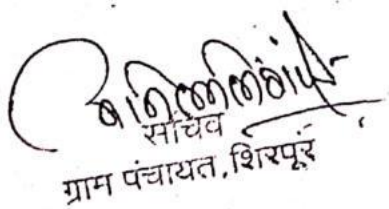 सचिव
ग्राम पंचायत, शिरपूर